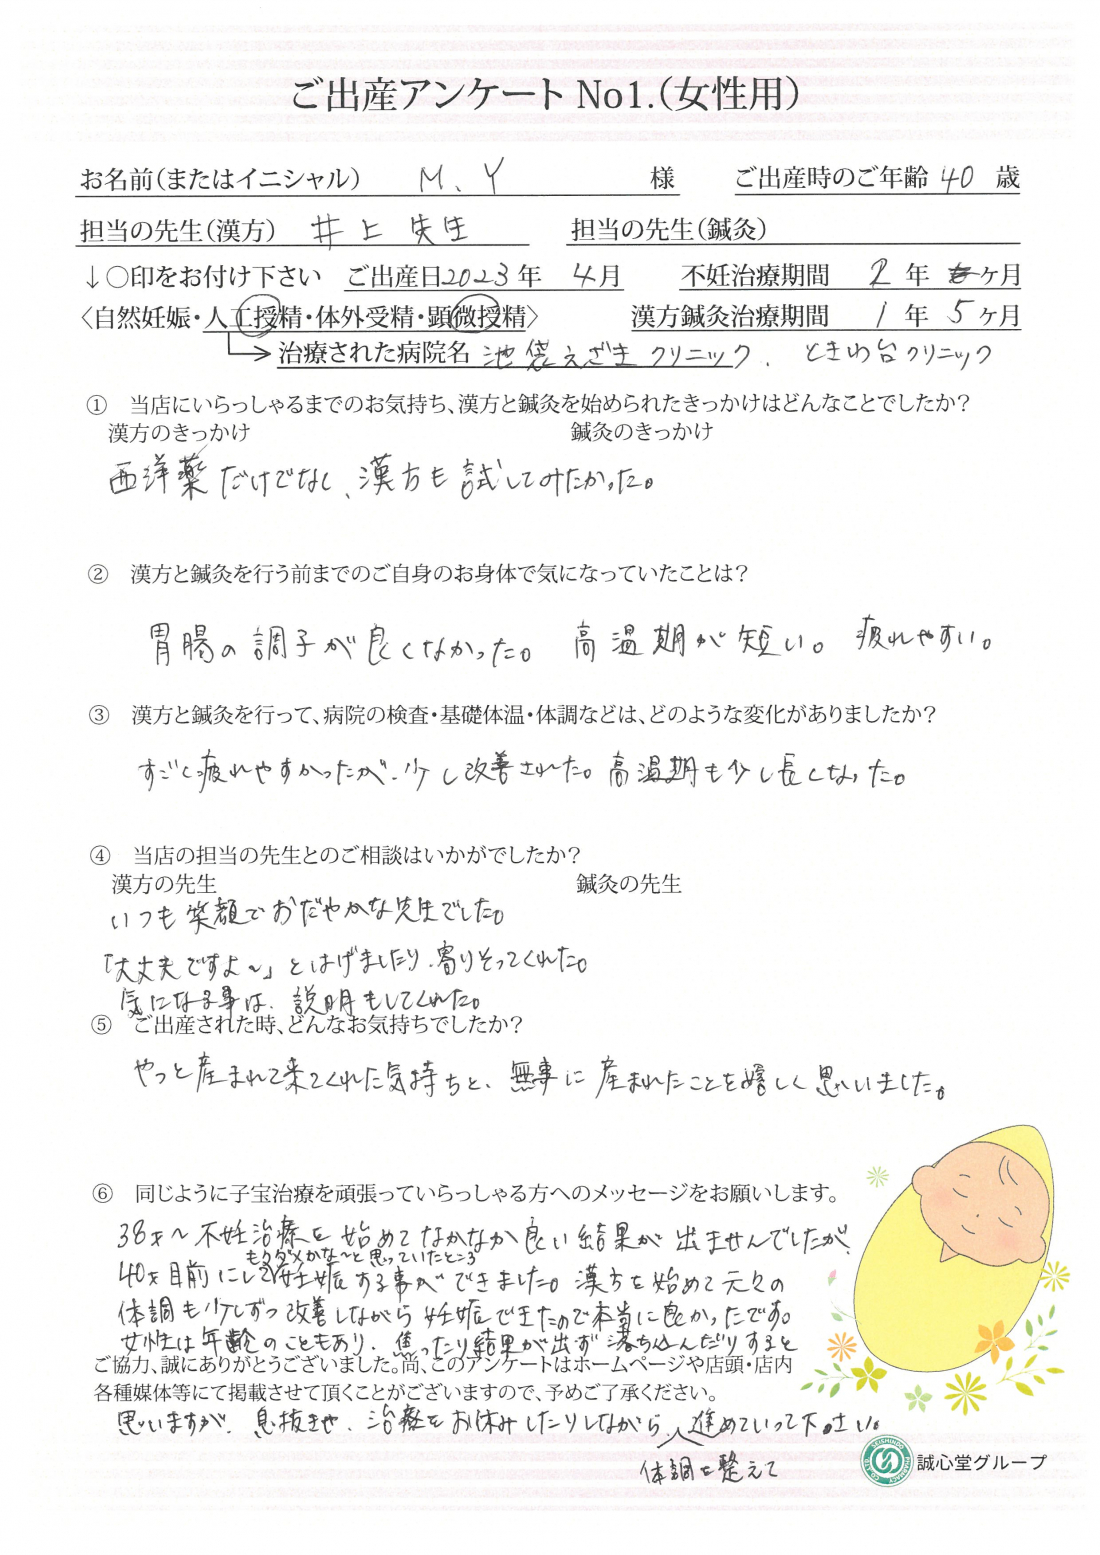 ご出産アンケートNo1.(女性用)
お名前(またはイニシャル) M、Y 様 ご出産時のご年齢 40 歳
担当の先生(漢方) 井上 先生 担当の先生(鍼灸)
↓○印をお付け下さい ご出産日2023年 4月 不妊治療期間 2 年 ヶ月
〈自然妊娠・人工授精・体外受精・顕微授精〉 漢方鍼灸治療期間 1 年 5ヶ月
治療された病院名 池袋えざきクリニック、ときわ台クリニック
① 当店にいらっしゃるまでのお気持ち、漢方と鍼灸を始められたきっかけはどんなことでしたか?
漢方のきっかけ 鍼灸のきっかけ
西洋薬だけでなく、漢方も試してみたかった。
② 漢方と鍼灸を行う前までのご自身のお身体で気になっていたことは?
胃腸の調子が良くなかった。 高温期が短い。 疲れやすい。
③ 漢方と鍼灸を行って、病院の検査・基礎体温・体調などは、どのような変化がありましたか?
すごく疲れやすかったが、少し改善された。高温期も少し長くなった。
④ 当店の担当の先生とのご相談はいかがでしたか?
漢方の先生 鍼灸の先生
いつも笑顔でおだやかな先生でした。
「大丈夫ですよ〜」とはげましたり、寄りそってくれた。
気になる事は、説明もしてくれた。
⑤ ご出産された時、どんなお気持ちでしたか?
やっと産まれて来てくれた気持ちと、無事に産まれたことを嬉しく思いました。
⑥ 同じように子宝治療を頑張っていらっしゃる方へのメッセージをお願いします。
38才〜不妊治療を始めてなかなか良い結果が出ませんでしたが、
もうダメかな〜と思っていたところ
40才目前にして妊娠する事ができました。漢方を始めて元々の
体調も少しずつ改善しながら妊娠できたので本当に良かったです。
女性は年齢のこともあり、焦ったり結果が出ず落ち込んだりすると
ご協力、誠にありがとうございました。尚、このアンケートはホームページや店頭・店内
各種媒体等にて掲載させて頂くことがございますので、予めご了承ください。
思いますが、息抜きや、治療をお休みしたりしながら、進めていって下さい。
体調を整えて
誠心堂グループ